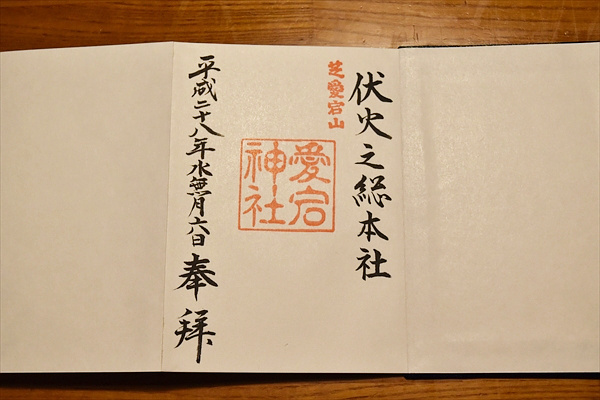 伏火之総本社
芝愛宕山
愛宕
神社
平成二十八年水無月六日 奉拝